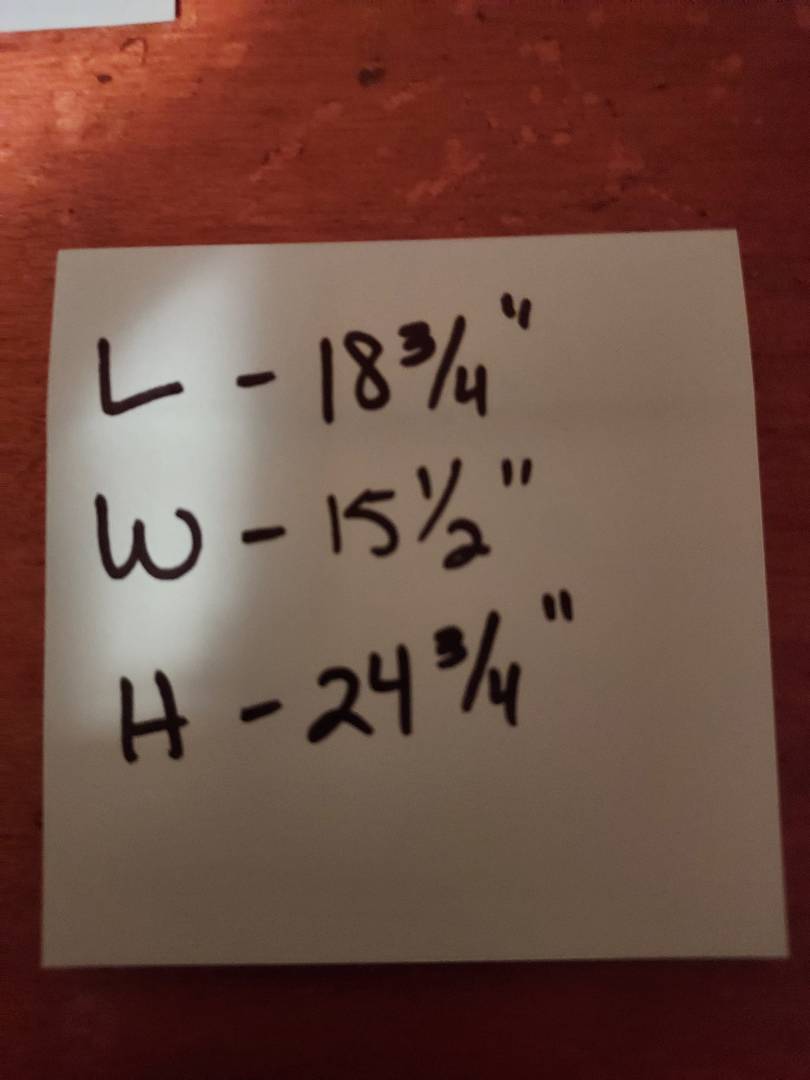 L - 18 3/4"
W - 15 1/2"
H - 24 3/4"